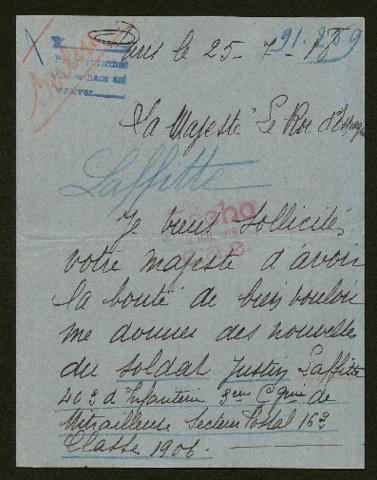 Paris le 25-7-18
91.259
Sa Majesté Le Roi d'Espagne
Laffitte
Je viens sollicité
votre majesté d'avoir
la bonté de bien vouloir
me donner des nouvelles
du soldat Justin Laffitte
403 d'Infanterie 3eme Cgnie de
Mitrailleuse Secteur Postal 163
Classe 1906.